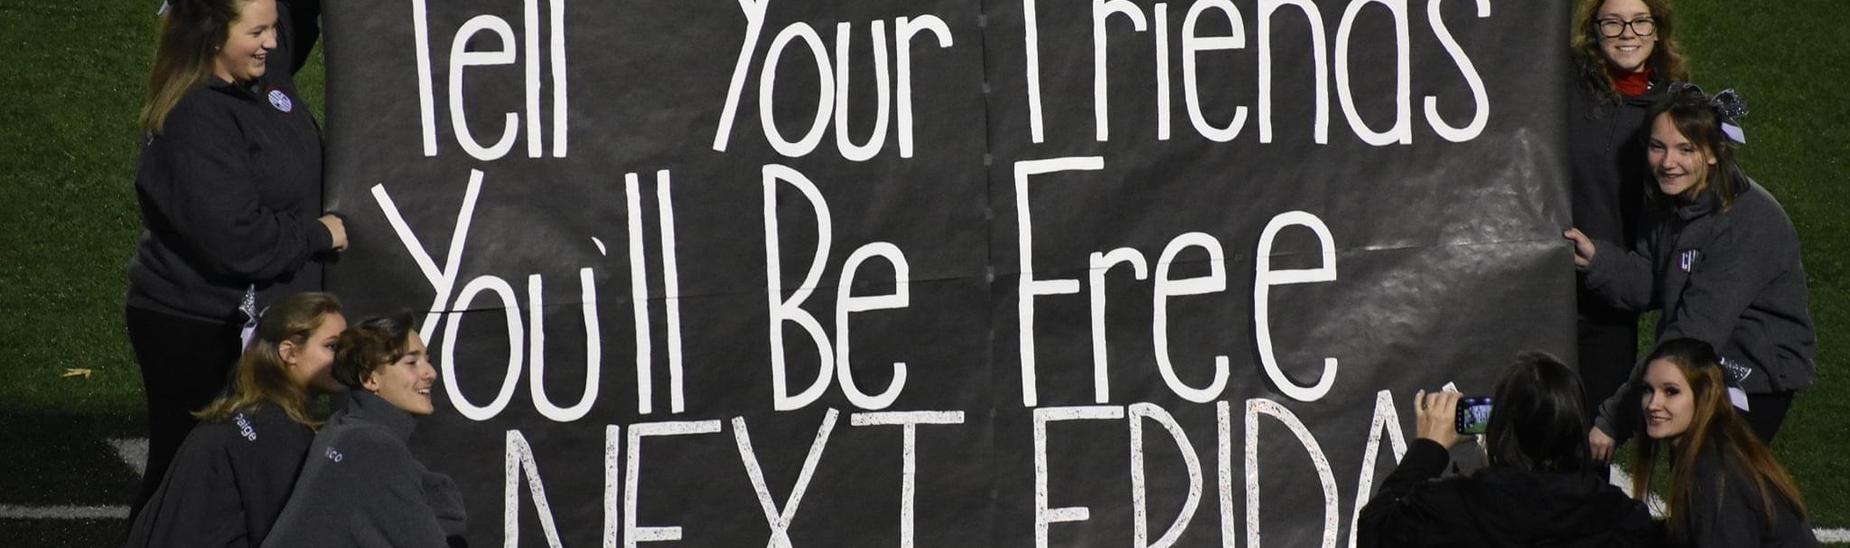 Tell Your Friends
You'll Be Free
NEXT FRIDA
Paige
ico